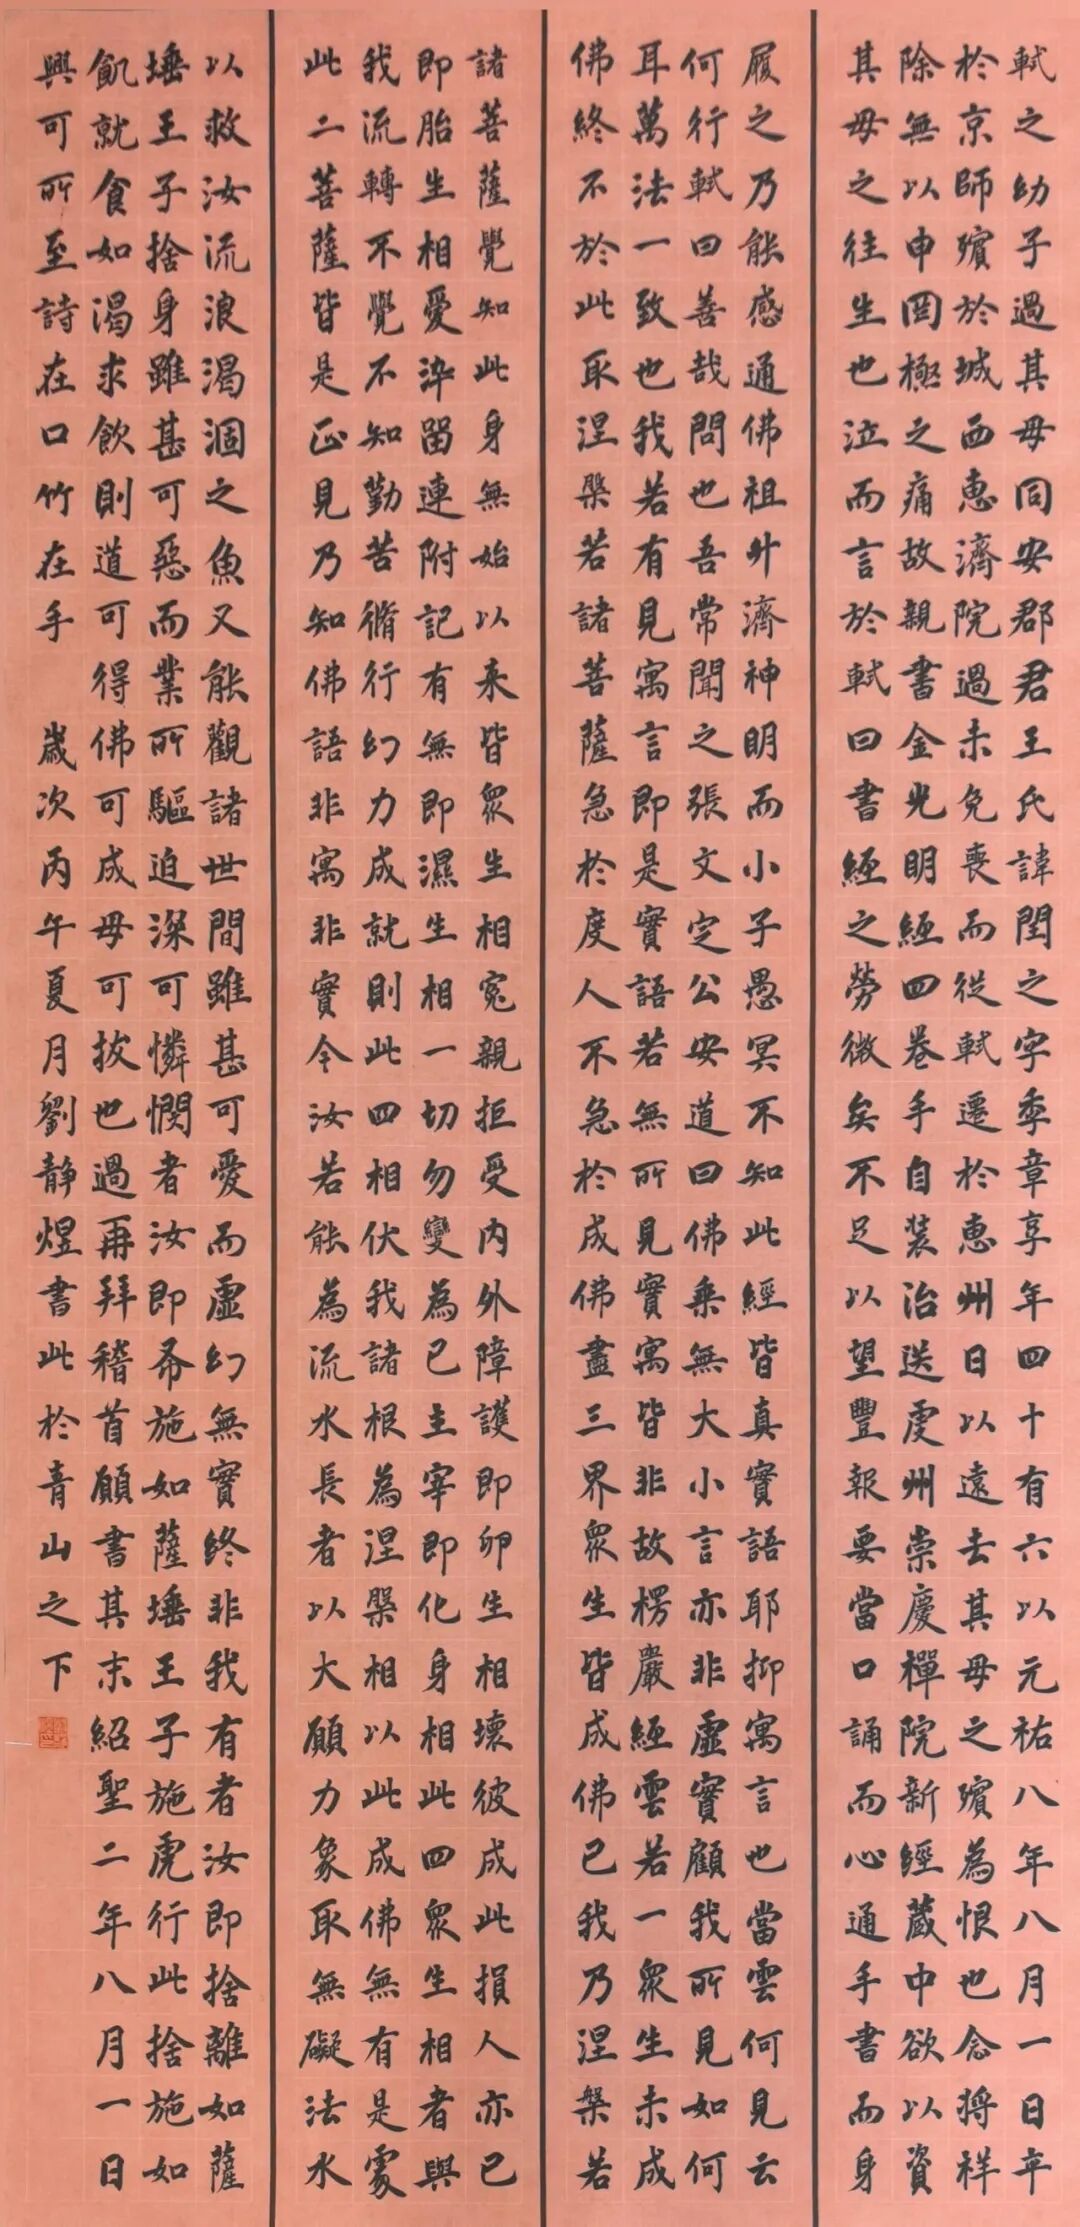 軾之幼子過其母同安郡君王氏諱閏之字季章享年四十有六以元祐八年八月一日卒
於京師殯於城西惠濟院過未免喪而從軾遷於惠州日以遠去其母之殯為恨也念將祥
除無以申罔極之痛故親書金光明經四卷手自裝治送虔州崇慶禪院新經藏中欲以資
其母之往生也泣而言於軾曰書經之勞微矣不足以望豐報要當口誦而心通手書而身
履之乃能感通佛祖升濟神明而小子愚冥不知此經皆真實語耶抑寓言也當雲何見云
何行軾曰善哉問也吾常聞之張文定公安道曰佛乘無大小言亦非虛實顧我所見如何
耳萬法一致也我若有見寓言即是實語若無所見實寓皆非故楞嚴經雲若一眾生未成
佛終不於此取涅槃若諸菩薩急於度人不急於成佛盡三界眾生皆成佛已我乃涅槃若
諸菩薩覺知此身無始以來皆眾生相寃親拒受內外障護即卵生相壞彼成此損人亦已
即胎生相愛染留連附記有無即濕生相一切勿變為已主宰即化身相此四眾生相者與
我流轉不覺不知勤苦脩行幻力成就則此四相伏我諸根為涅槃相以此成佛無有是處
此二菩薩皆是正見乃知佛語非寓非實今汝若能為流水長者以大願力象取無礙法水
以救汝流浪渴涸之魚又能觀諸世間雖甚可愛而虛幻無實終非我有者汝即捨離如薩
埵王子捨身雖甚可惡而業所驅迫深可憐憫者汝即布施如薩埵王子施虎行此捨施如
飢就食如渴求飲則道可得佛可成母可拔也過再拜稽首願書其末紹聖二年八月一日
興可所至詩在口竹在手 歲次丙午夏月劉靜煜書此於青山之下